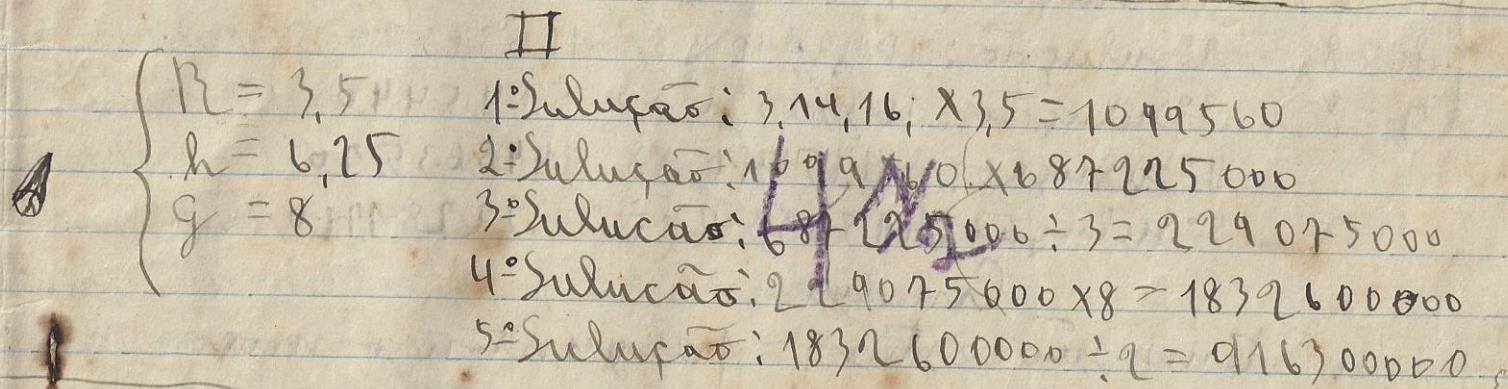 II
R = 3,5 1ºSolução: 3,14,16; ×3,5 = 1099560
h = 6,25 2ºSolução: 1099560 × 687225000
g = 8 3ºSolucão: 687225000 ÷ 3 = 229075000
4ºSolucão: 229075000 ×8 = 1832600000
5ºSolução: 1832600000 ÷ 2 = 916300000